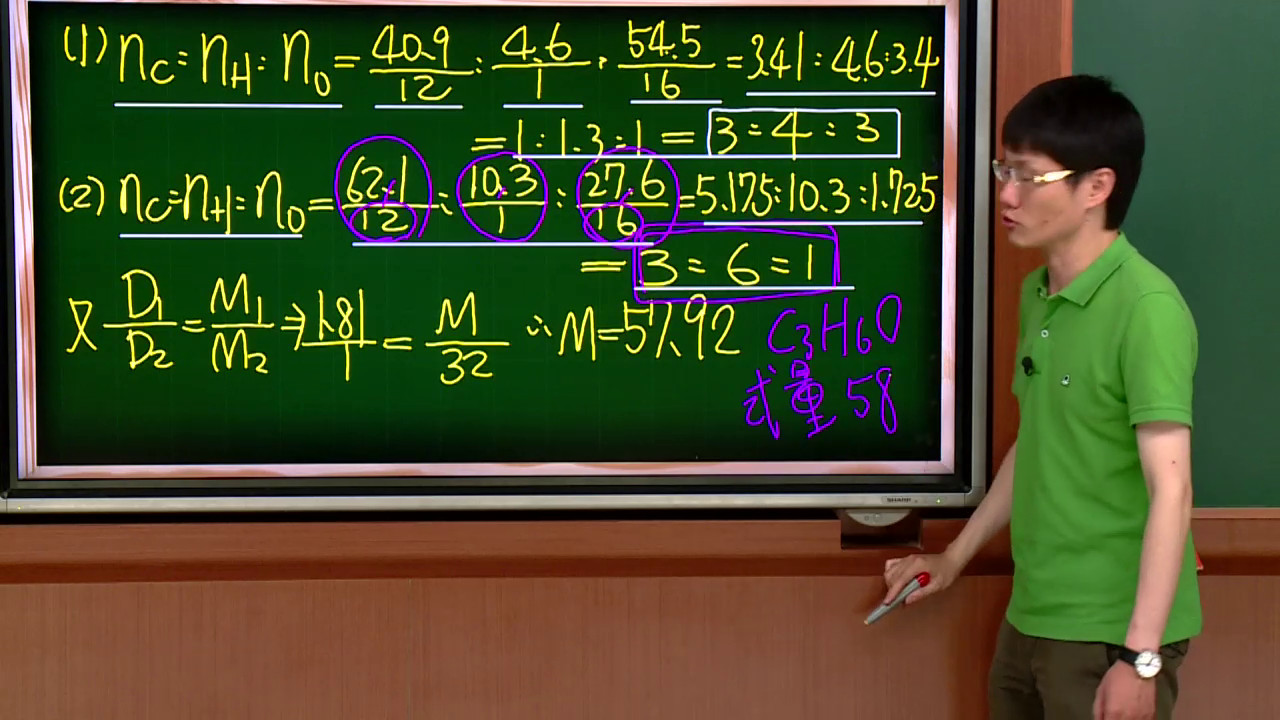 (1) nC:nH:nO = 40.9/12 : 4.6/1 : 54.5/16 = 3.41:4.6:3.4
= 1:1.3:1 = 3:4:3
(2) nC:nH:nO = 62.1/12 : 10.3/1 : 27.6/16 = 5.175:10.3:1.725
= 3:6:1
又 D₁/D₂ = M₁/M₂ ⇒ 1.81/1 = M/32 ∴ M=57.92 C₃H₆O
式量 58
SHARP